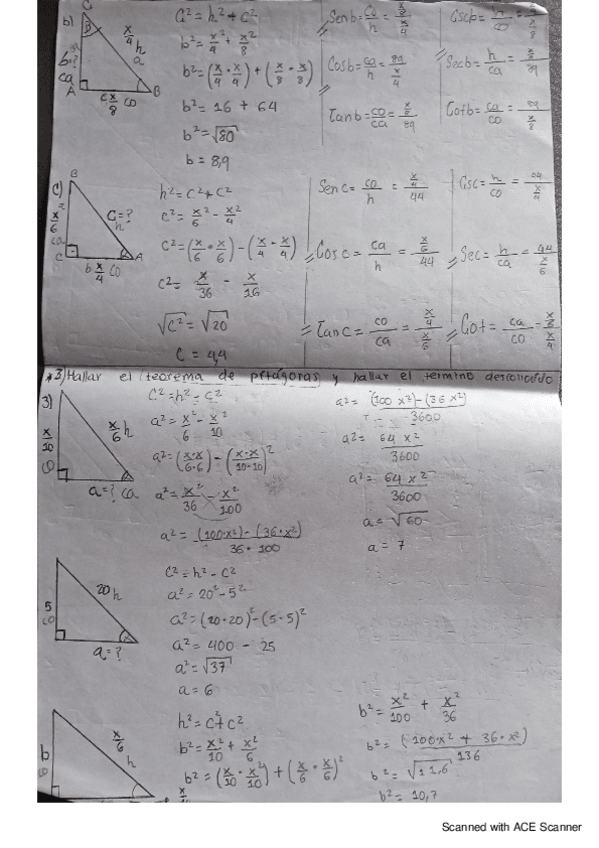 b)
C
B
x/4 h
a
b=?
ca
A
c x/8 co
B
C²=h²+c²
b²= x²/4 + x²/8
b²=(x/4 · x/4)+(x/8 · x/8)
b²= 16 + 64
b²=√80
b= 8,9
Sen b= co/h = x/8 / x/4
Cos b= ca/h = 89 / x/4
Tan b= co/ca = x/8 / 89
Csc b= h/co = x/4 / x/8
Sec b= h/ca = x/8 / 89
Cot b= ca/co = 89 / x/8
C)
B
x/6
a
ca
C=?
h
C
b x/4 co
A
h²=c²+c²
c²= x²/6 - x²/4
c²=(x/6 · x/6)-(x/4 · x/4)
c²= x/36 - x/16
√c²=√20
c = 4,4
Sen c= co/h = x/4 / 44
Cos c= ca/h = x/6 / 44
Tan c= co/ca = x/4 / x/6
Csc= h/co = 44 / x/4
Sec= h/ca = 44 / x/6
Cot= ca/co = x/6 / x/4
*3) Hallar el teorema de pitágoras y hallar el termino desconocido
3)
x/10
co
x/6 h
a=? ca
C²=h²-c²
a²= x²/6 - x²/10
a²=(x·x/6·6)-(x·x/10·10)²
a²= x²/36 - x²/100
a²= (100·x²)-(36·x²) / 36·100
a²= (100x²)-(36x²) / 3600
a²= 64x² / 3600
a²= 64x² / 3600
a=√60
a= 7
5
co
20h
a=?
C²=h²-c²
a²=20²-5²
a²=(20·20)²-(5·5)²
a²=400 - 25
a²=√37
a=6
b
co
x/6
h
h²=c²+c²
b²= x²/10 + x²/6
b²=(x/10 · x/10)²+(x/6 · x/6)²
b²= x²/100 + x²/36
b²= (100x² + 36·x²) / 136
b²=√11,6
b²= 10,7
Scanned with ACE Scanner